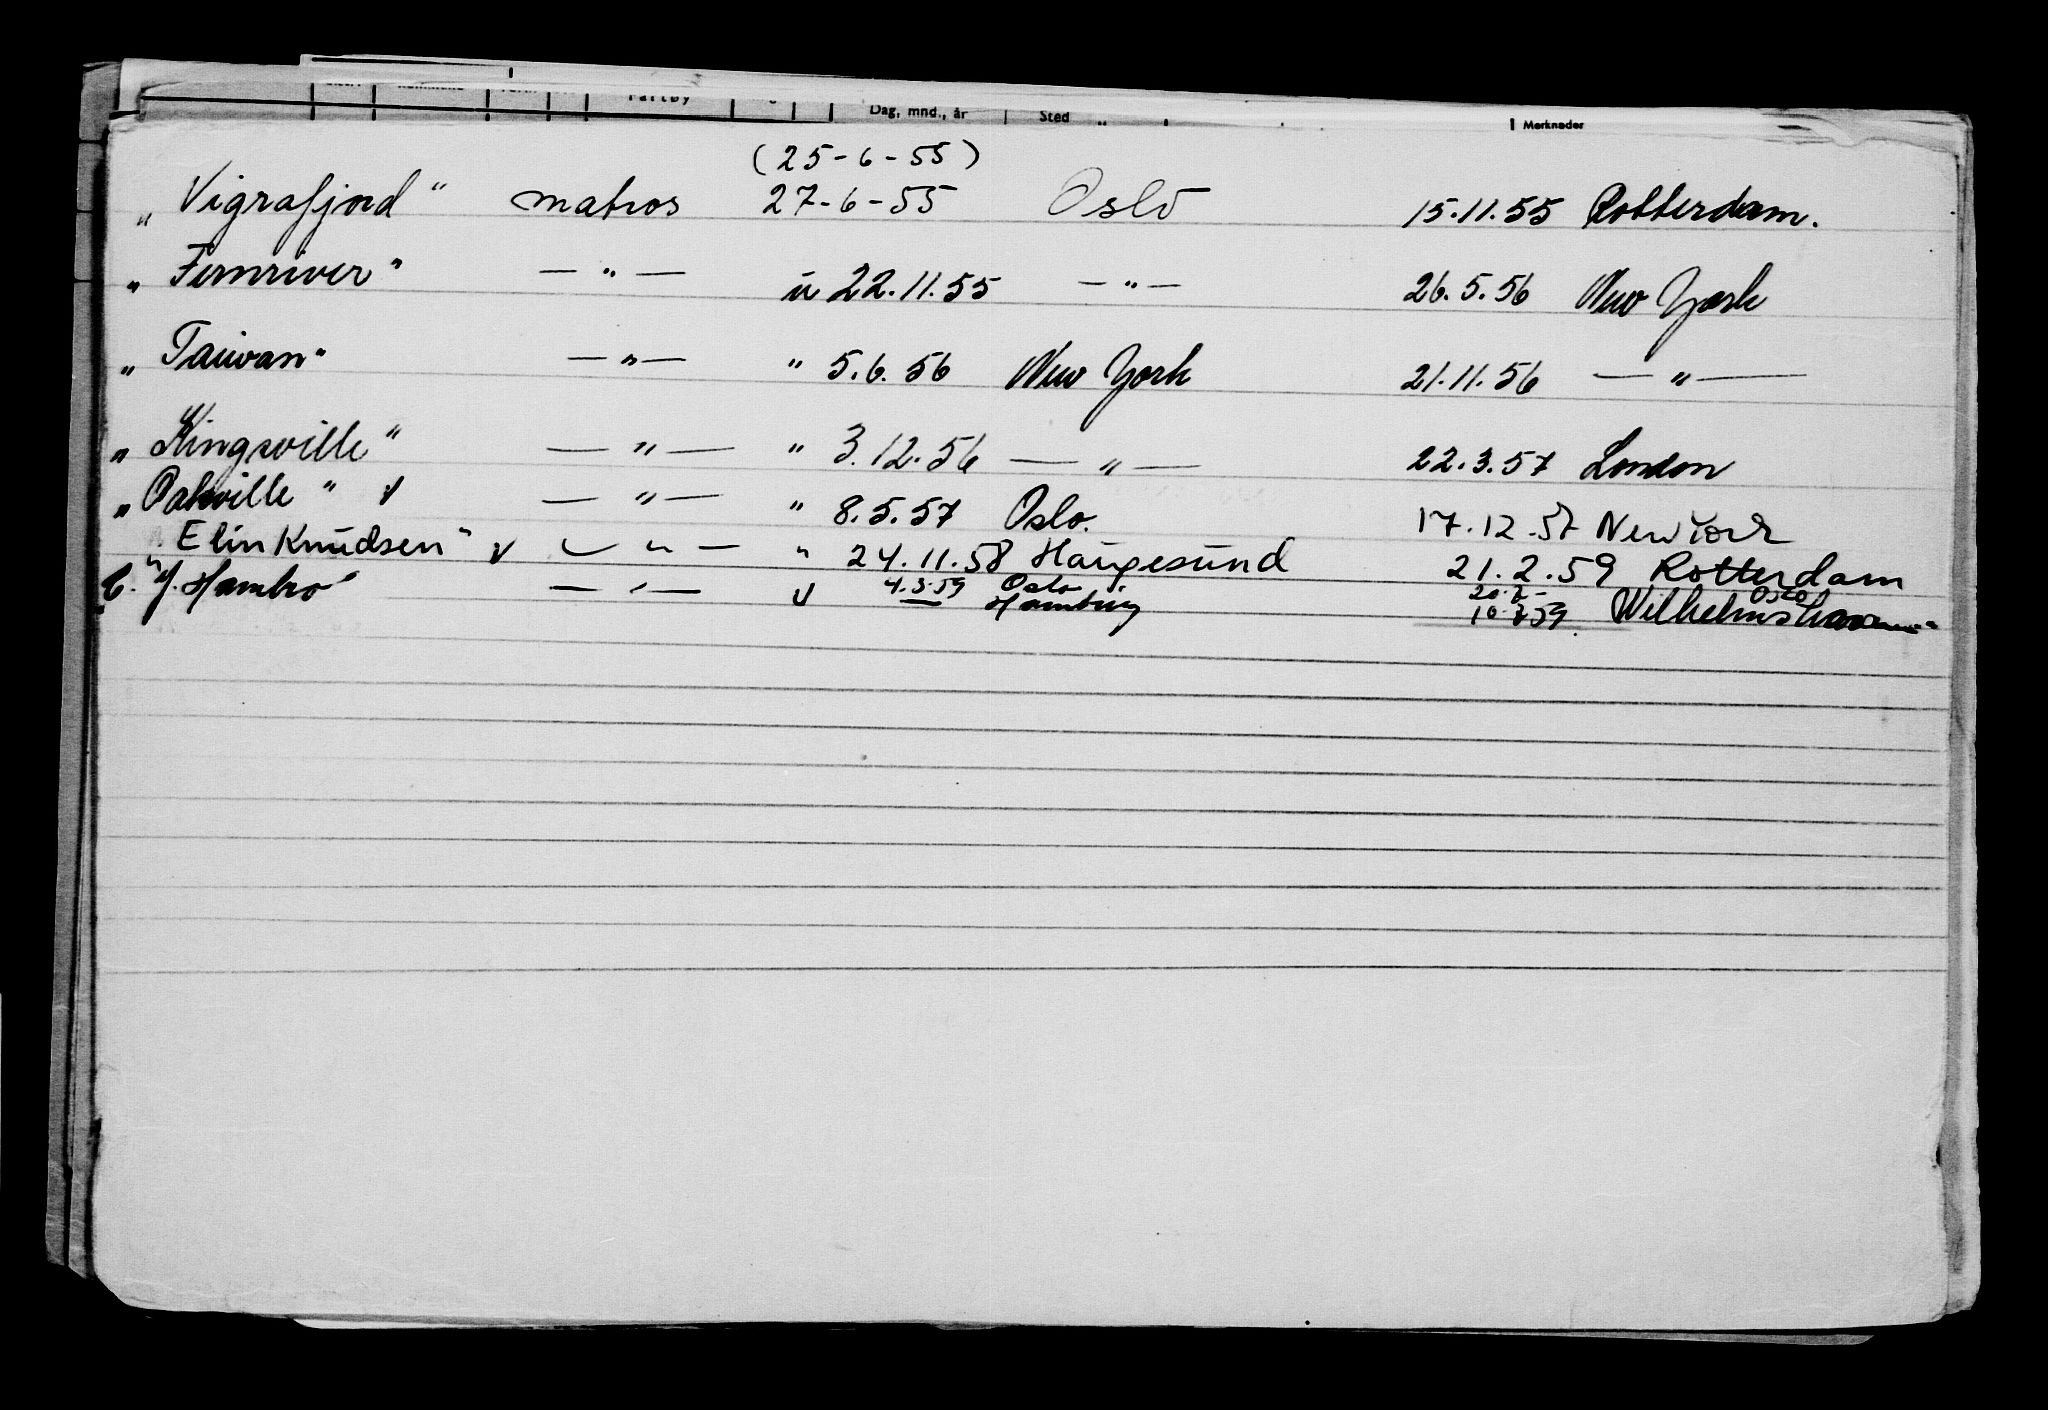 Fartøy Dag, mnd., år Sted Merknader
(25-6-55)
„Vigrafjord" matros 27-6-55 Oslo 15.11.55 Rotterdam.
„Fernriver" — " — u 22.11.55 — " — 26.5.56 New York
„Taiwan" — " — " 5.6.56 New York 21.11.56 — " —
„Kingsville" — " — " 3.12.56 — " — 22.3.57 London
„Oakville" v — " — " 8.5.57 Oslo. 17.12.57 New York
"Elin Knudsen" v — " — " 24.11.58 Haugesund 21.2.59 Rotterdam
C. "J. Hambro" — " — v 4.3.59 Oslo Oslo
— Hamburg 59. Wilhelmshaven